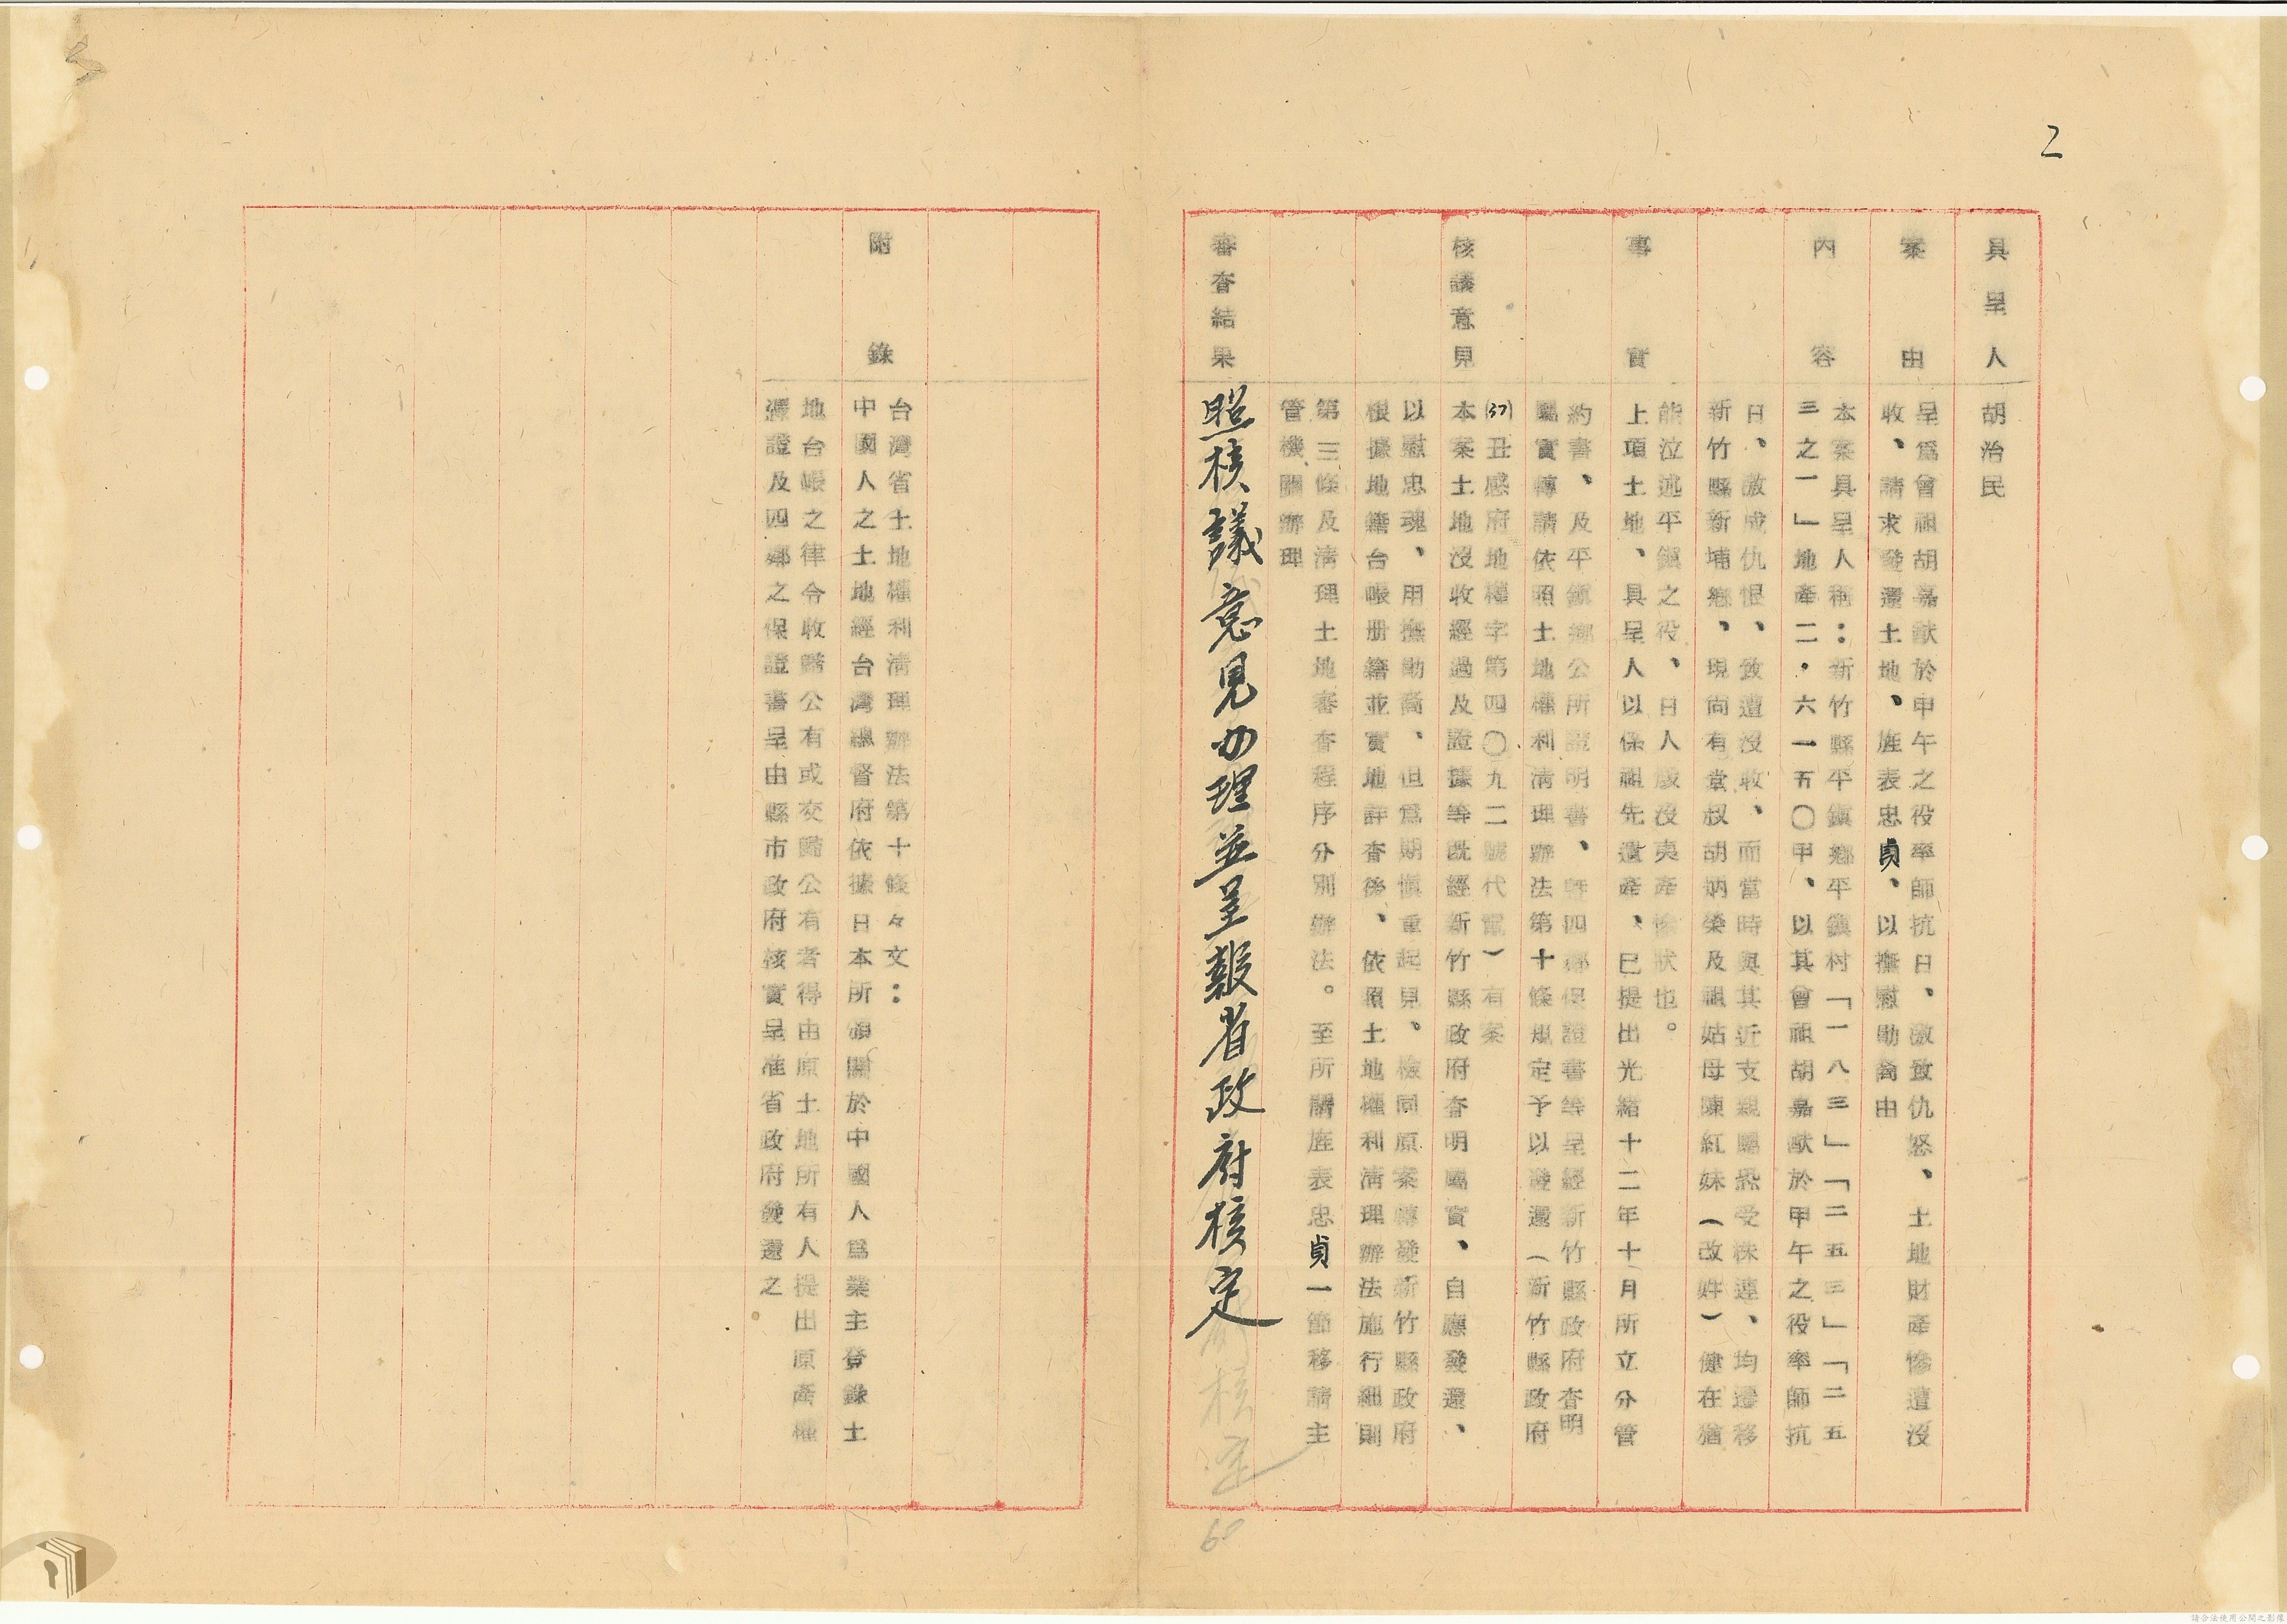 2
具呈人
胡治民
案由
呈爲曾祖胡嘉猷於甲午之役率師抗日、激致仇怒、土地財產慘遭沒
收、請求發還土地、旌表忠貞、以撫慰勛裔由
內容
本案具呈人稱：新竹縣平鎭鄉平鎭村「一八三」「二五三」「二五
三之一」地產二．六一五〇甲、以其曾祖胡嘉猷於甲午之役率師抗
日、激成仇恨、致遭沒收、而當時與其近支親屬恐受株連、均遷移
新竹縣新埔鄉、現尙有堂叔胡炳榮及祖姑母陳紅妹（改姓）健在猶
能泣述平鎭之役、日人毀沒夷產慘狀也。
事實
上項土地、具呈人以係祖先遺產、已提出光緒十二年十月所立分管
約書、及平鎭鄉公所證明書、曁四鄰保證書等呈經新竹縣政府查明
屬實轉請依照土地權利淸理辦法第十條規定予以發還（新竹縣政府
(37)丑感府地權字第四〇九二號代電）有案
核議意見
本案土地沒收經過及證據等旣經新竹縣政府查明屬實、自應發還、
以慰忠魂、用撫勛裔、但爲期愼重起見、檢同原案轉發新竹縣政府
根據地籍台帳册籍並實地詳查後、依照土地權利淸理辦法施行細則
第三條及淸理土地審查程序分別辦法。至所請旌表忠貞一節移請主
管機關辦理
審查結果
照核議意見办理並呈報省政府核定
核定
60
附錄
台灣省土地權利淸理辦法第十條々文：
中國人之土地經台灣總督府依據日本所頒關於中國人爲業主登錄土
地台帳之律令收歸公有或交歸公有者得由原土地所有人提出原產權
憑證及四鄰之保證書呈由縣市政府核實呈准省政府發還之
請合法使用公開之影像